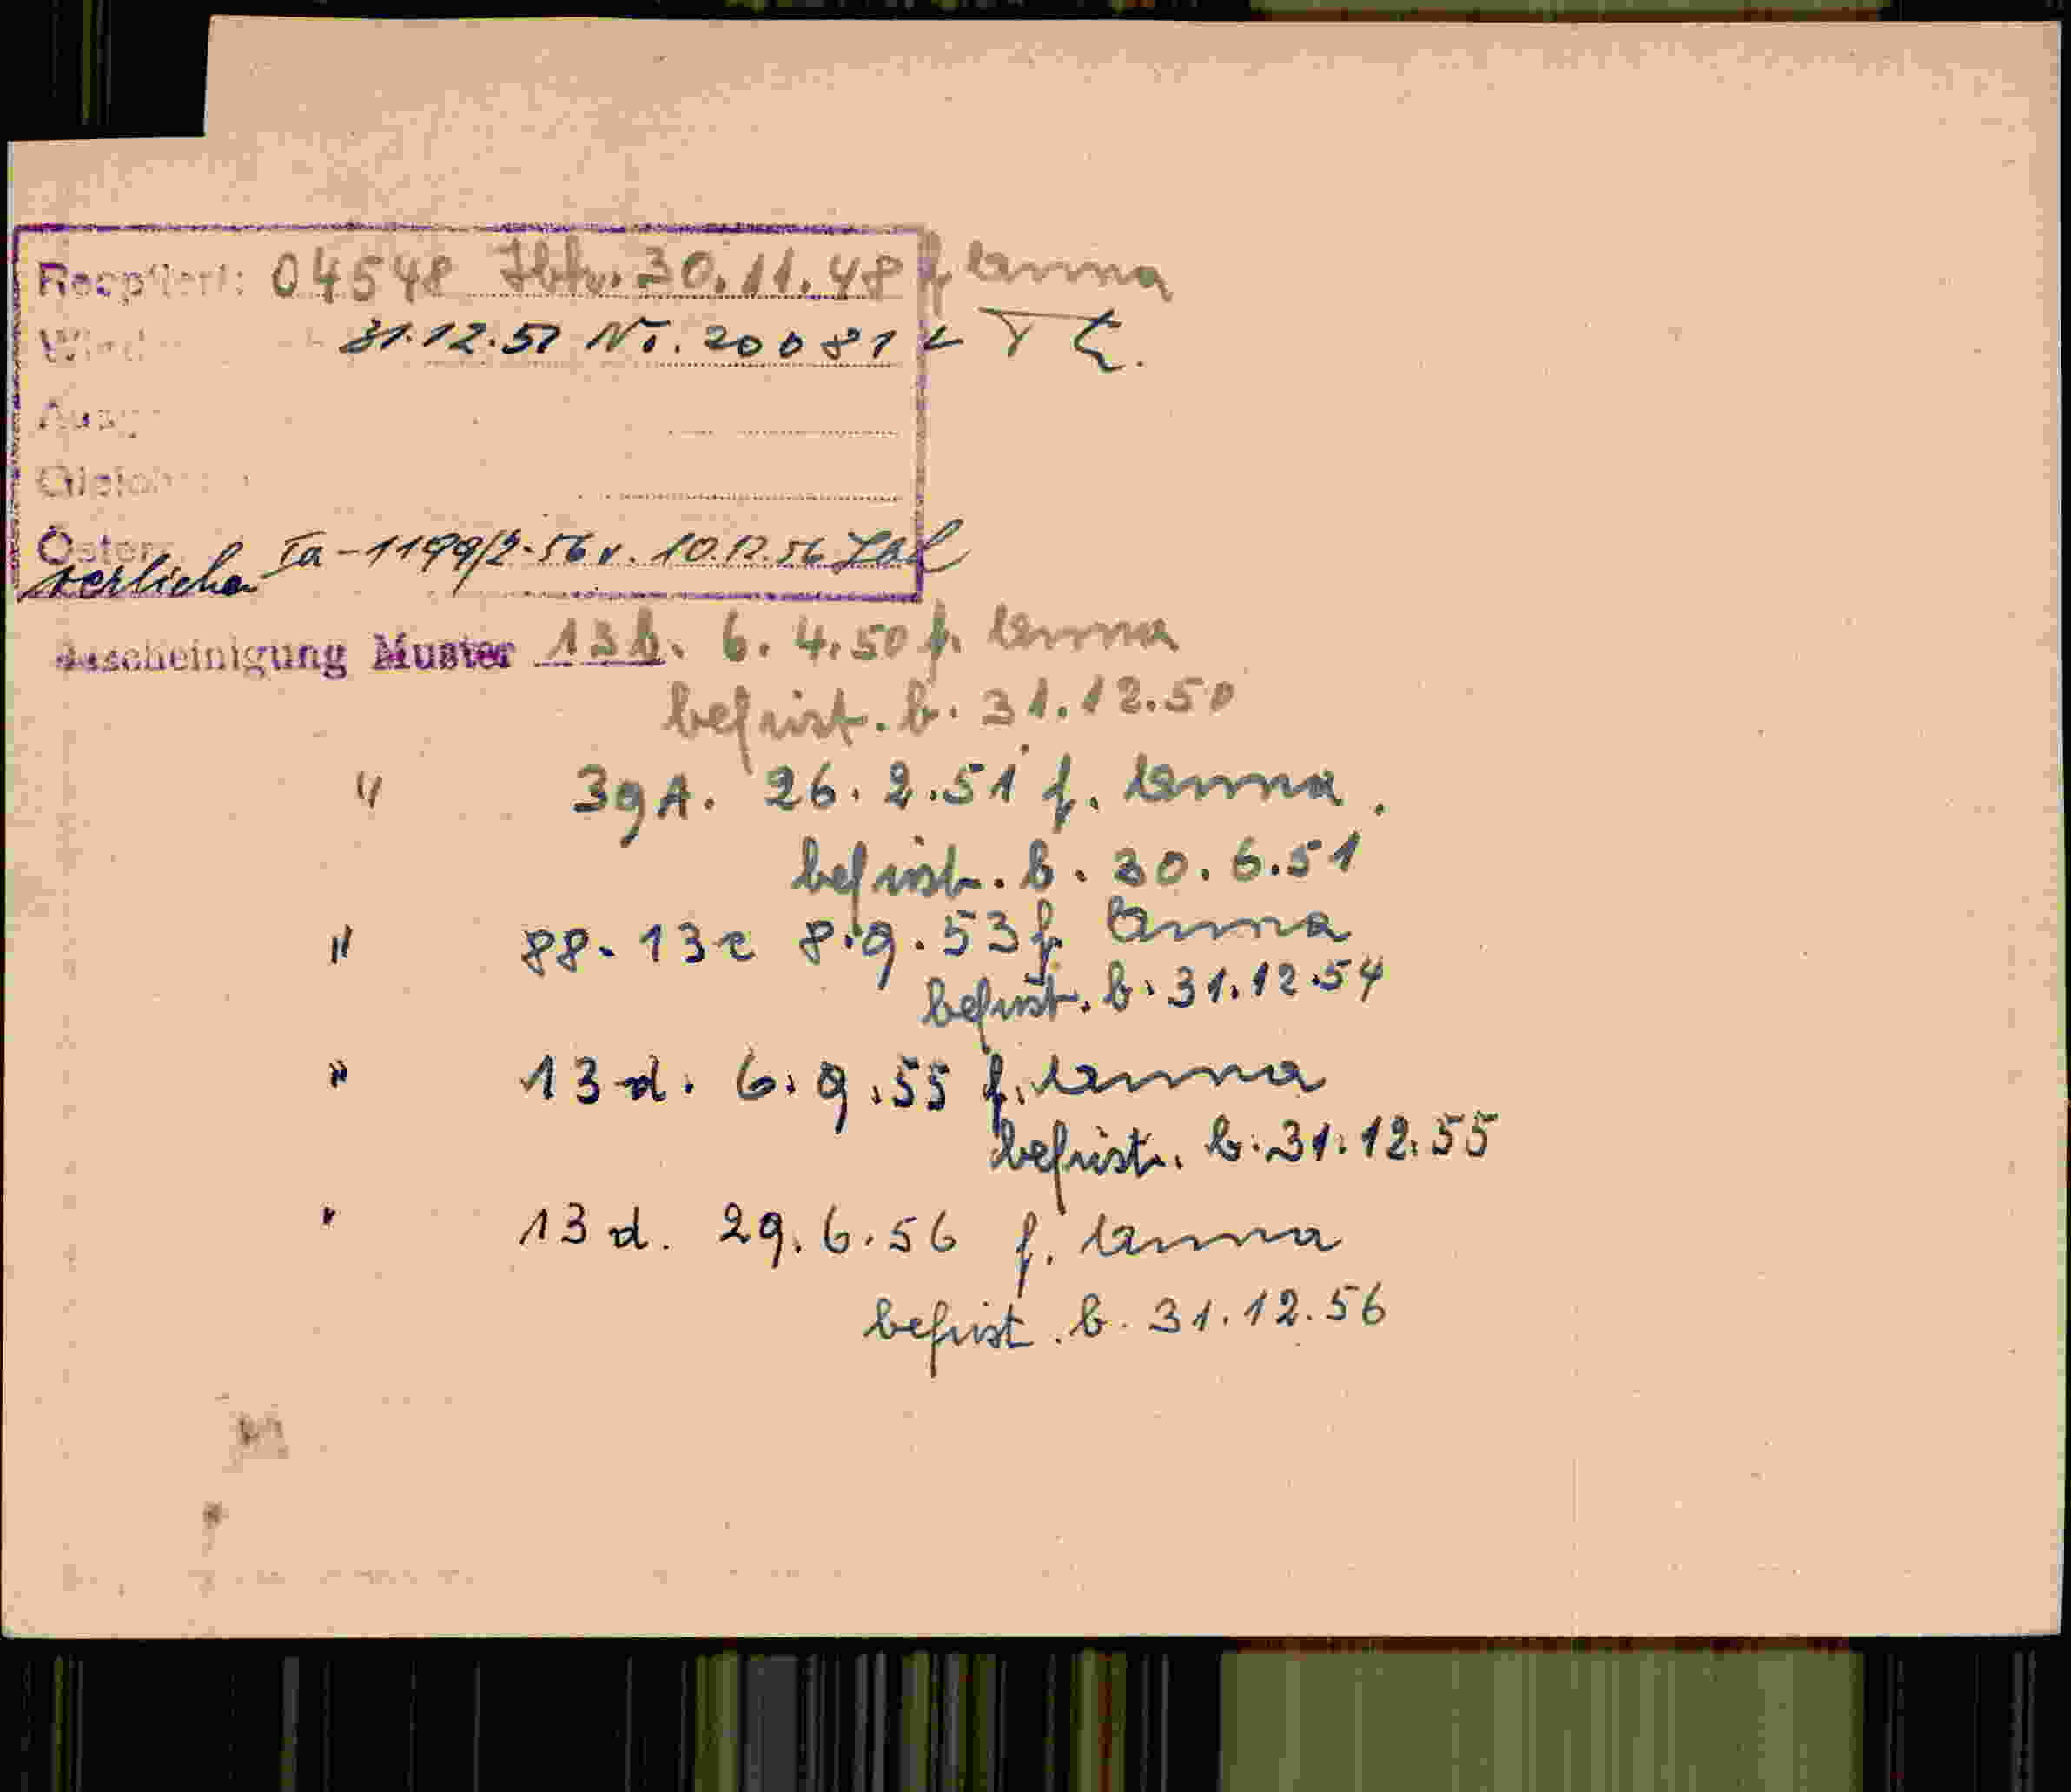 04548 Ibk. 30.11.48 f. Anna
31.12.51 Nr. 20081
Österr.
verliehen Ia-1199/2-56 v. 10.12.56
Bescheinigung Muster 13b. 6.4.50 f. Anna
befrist. b. 31.12.50
" 39A. 26.2.51 f. Anna.
befrist. b. 30.6.51
" 88. 13c 8.9.53 f. Anna
befrist. b. 31.12.54
" 13d. 6.9.55 f. Anna
befrist. b. 31.12.55
" 13d. 29.6.56 f. Anna
befrist. b. 31.12.56